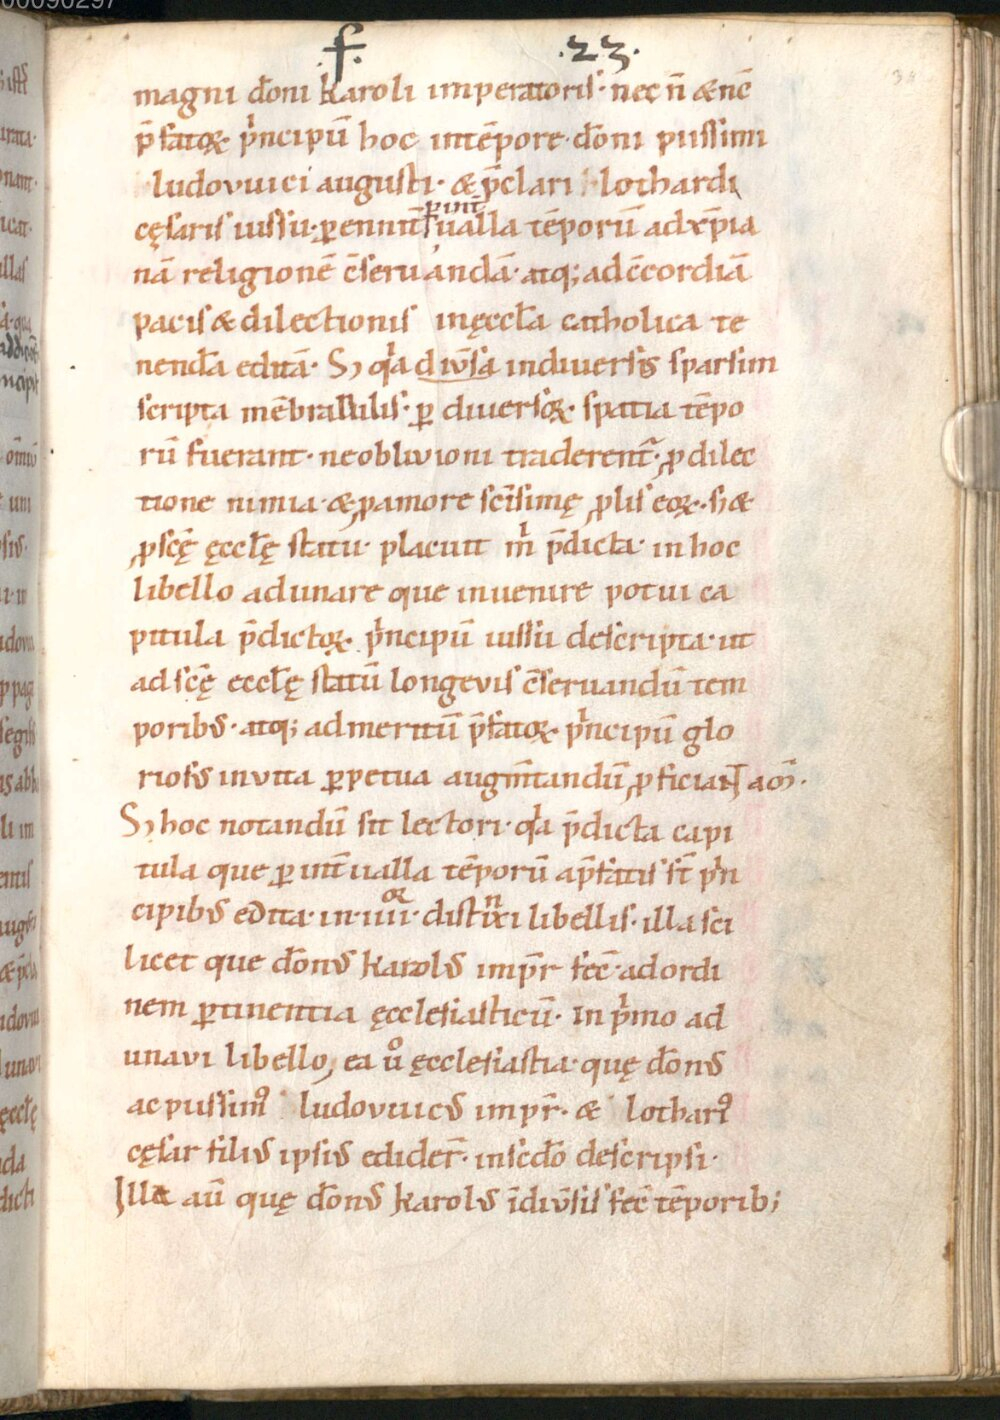 .f. .23.
magni dōni karoli imperatoris· nec n̄ &nē
p̄fatoꝝ pͥncipū hoc intēpore· dōni piissimi
ludovuici augusti· & p̄clari lothardi
cęsaris iussu· ꝑ enim īt ꝑ int̄
ualla tēporū adxp̄ia
nā religionē c̄seruandā· atq; adc̄cordiā
pacis & dilectionis inęccła catholica te
nendā editā· S; qͥa div̄sa indiuersis sparsim
scripta mēbranulis· ꝑ diuersoꝝ· spatia tēpo
rū fuerant· neoblivioni traderent᷑· ꝓ dilec
tione nimia· & ꝓ amore scīsimę ꝓlis eoꝝ· s; &
ꝓ scę̄ ęccłę statu· placuit m̄ p̄dicta· in hoc
libello adunare que inuenire potui ca
pitula p̄dictoꝝ· pͥncipū iussu descripta· ut
ad scę̄ eccłę statū longevis c̄seruandū tem
poribꝰ· atq; admeritū p̄fatoꝝ· pͥncipū glo
riosꝰ invita ꝑpetua augm̄tandū, ꝓficiant am̄·
S; hoc notandū sit lectori· qͥa p̄dicta capi
tula que ꝑ int̄ualla tēporū ap̄fatis st̄ pͥn
cipibꝰ edita· in·iiii·oꝝ distinxi libellis· illa sci
licet que dōnꝰ karolꝰ imp̄r fec̄· adordi
nem ꝑtinentia ęcclesiasticū· In pͥmo ad
unavi libello, ea ů ęcclesiastia· quę dōnꝰ
ac piissimꝰ ludovuicꝰ imp̄r· & lotharꝰ
cęsar filiꝰ ipsiꝰ edider̄· insc̄do descripsi·
Illa aū quę dōnꝰ karolꝰ īdiv̄sis fec̄ tēporib;